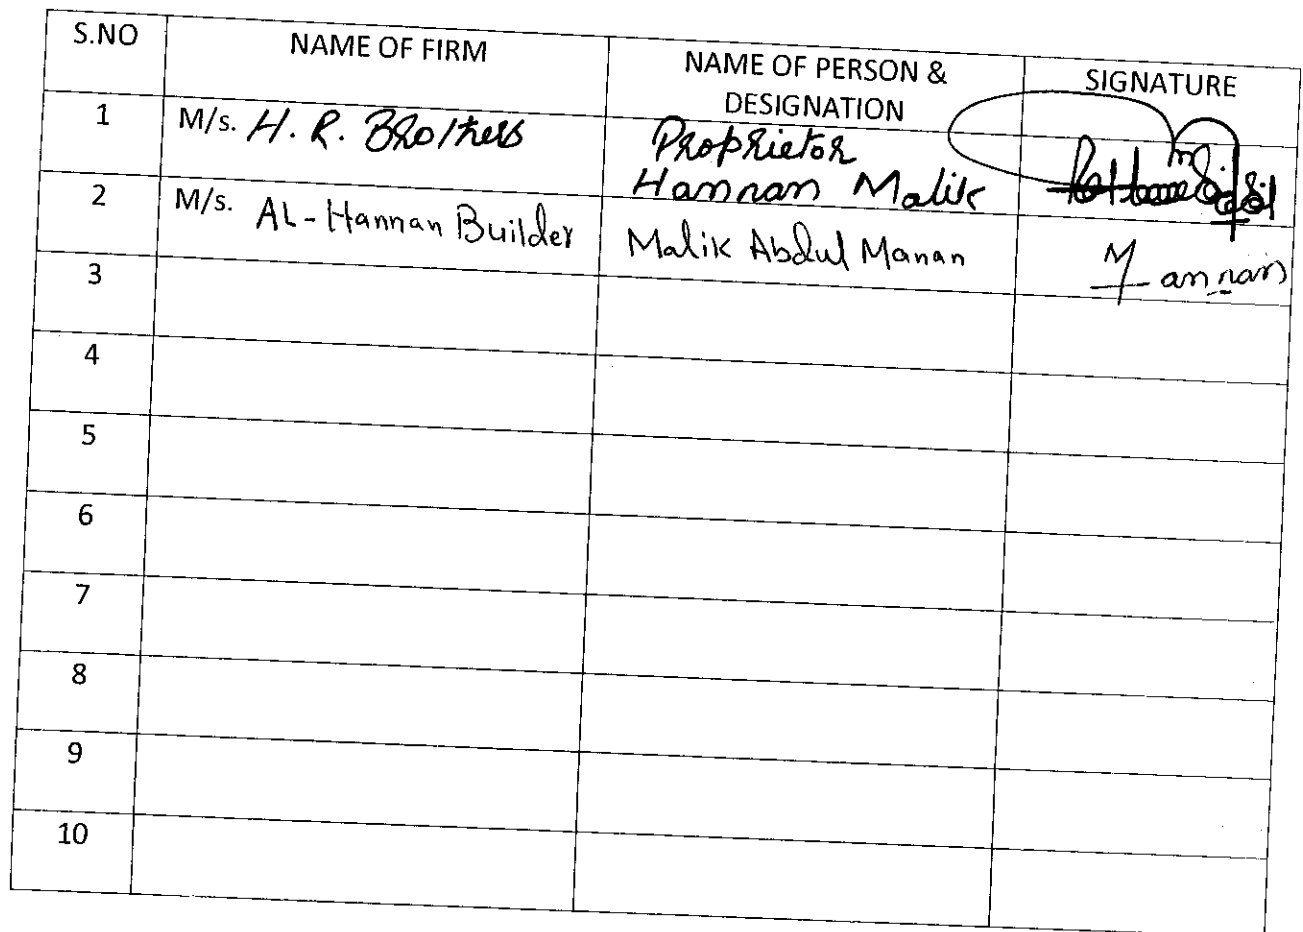 S.NO NAME OF FIRM NAME OF PERSON & DESIGNATION SIGNATURE
1 M/s. H. R. Brothers Proprietor
Hannan Malik
2 M/s. AL-Hannan Builder Malik Abdul Manan Mannan
3
4
5
6
7
8
9
10